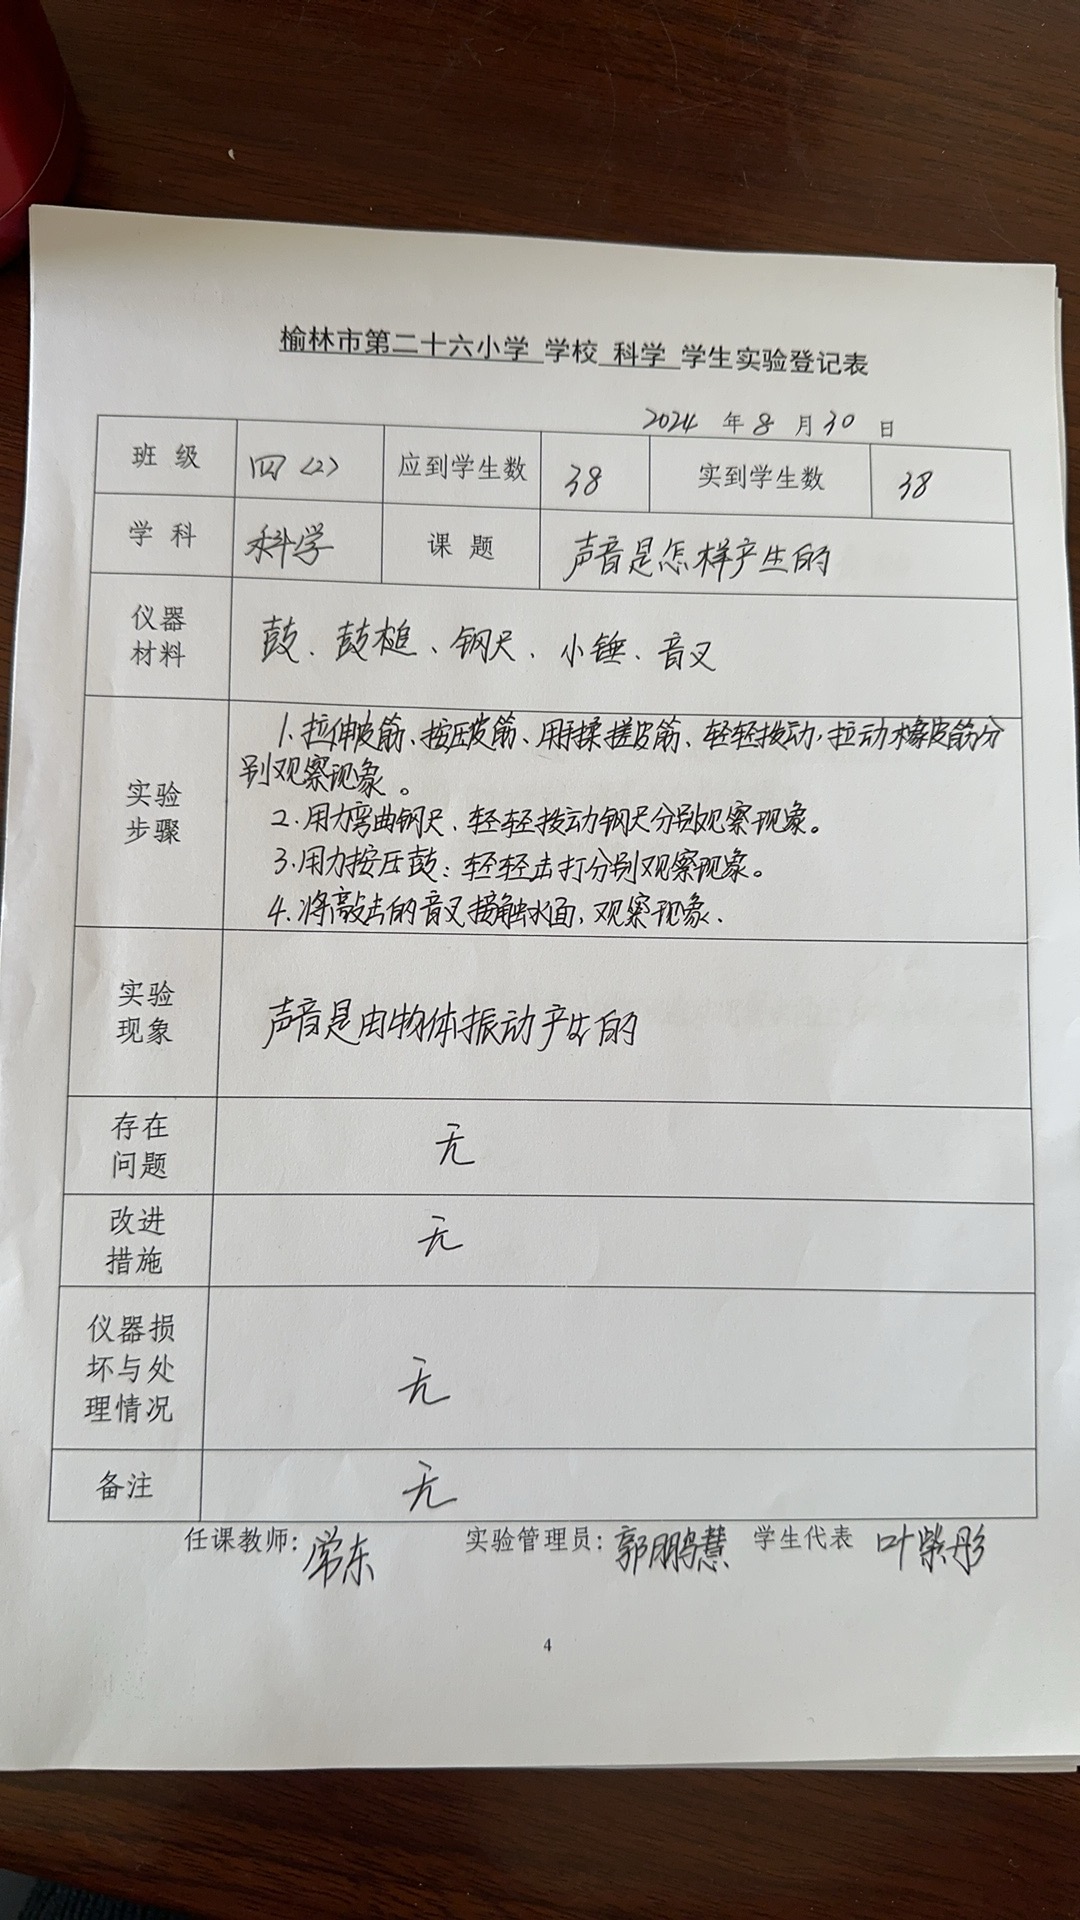 榆林市第二十六小学 学校 科学 学生实验登记表
2024 年 8 月 30 日
班 级 四(2) 应到学生数 38 实到学生数 38
学 科 科学 课 题 声音是怎样产生的
仪器
材料
鼓、鼓槌、钢尺、小锤、音叉
实验
步骤
1.拉伸皮筋、按压皮筋、用手揉搓皮筋、轻轻拨动,拉动橡皮筋分
别观察现象。
2.用力弯曲钢尺、轻轻拨动钢尺分别观察现象。
3.用力按压鼓;轻轻击打分别观察现象。
4.将敲击的音叉接触水面,观察现象.
实验
现象
声音是由物体振动产生的
存在
问题
无
改进
措施
无
仪器损
坏与处
理情况
无
备注 无
任课教师:常东 实验管理员:郭鹏慧 学生代表 叶紫彤
4